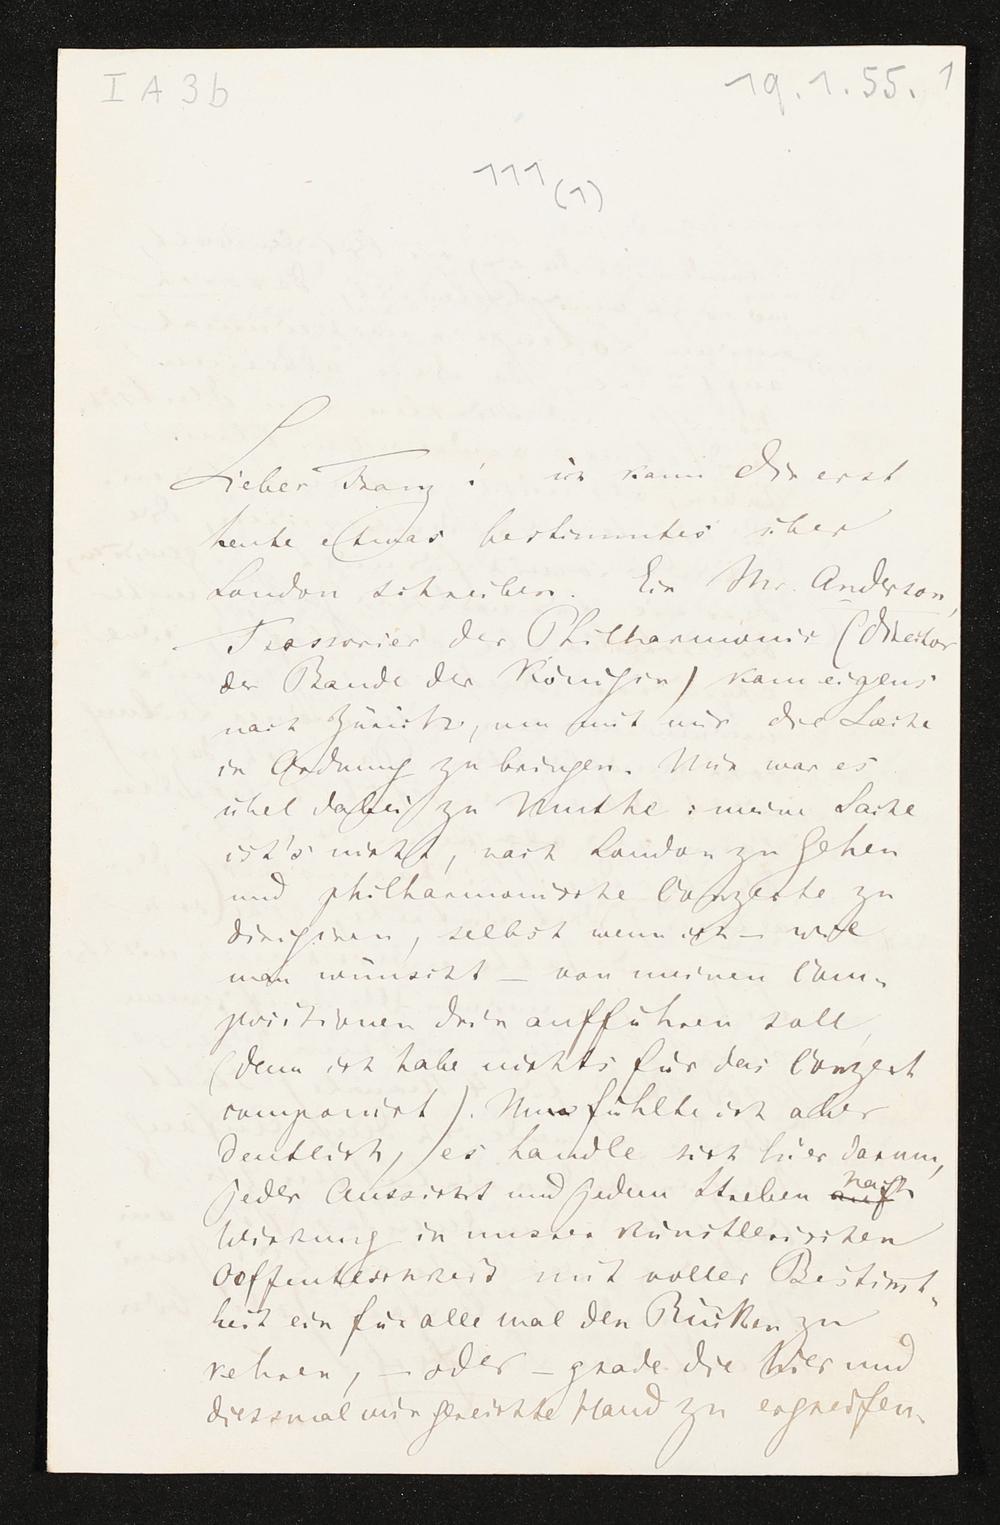 I A 3b
19.1.55. 1
111(1)
Lieber Franz! ich kann Dir erst
heute etwas bestimmtes über
London schreiben. Ein Mr. Anderson,
Tressorier der Philharmonie (Director
der Bande der Königin) kam eigens
nach Zürich, um mit mir die Sache
in Ordnung zu bringen. Mir war es
übel dabei zu Muthe: meine Sache
ist's nicht, nach London zu gehen
und philharmonische Conzerte zu
dirigiren, selbst wenn ich – wie
man wünscht – von meinen Com-
positionen drin aufführen soll,
(denn ich habe nichts für das Conzert
componirt). Nun fühlte ich aber
deutlich, es handle sich hier darum,
jeder Aussicht und jedem Streben auf nach
Wirkung in unsrer künstlerischen
Oeffentlichkeit mit voller Bestimt-
heit ein für alle mal den Rücken zu
kehren, – oder – grade die hier und
diessmal mir gereichte Hand zu ergreifen.